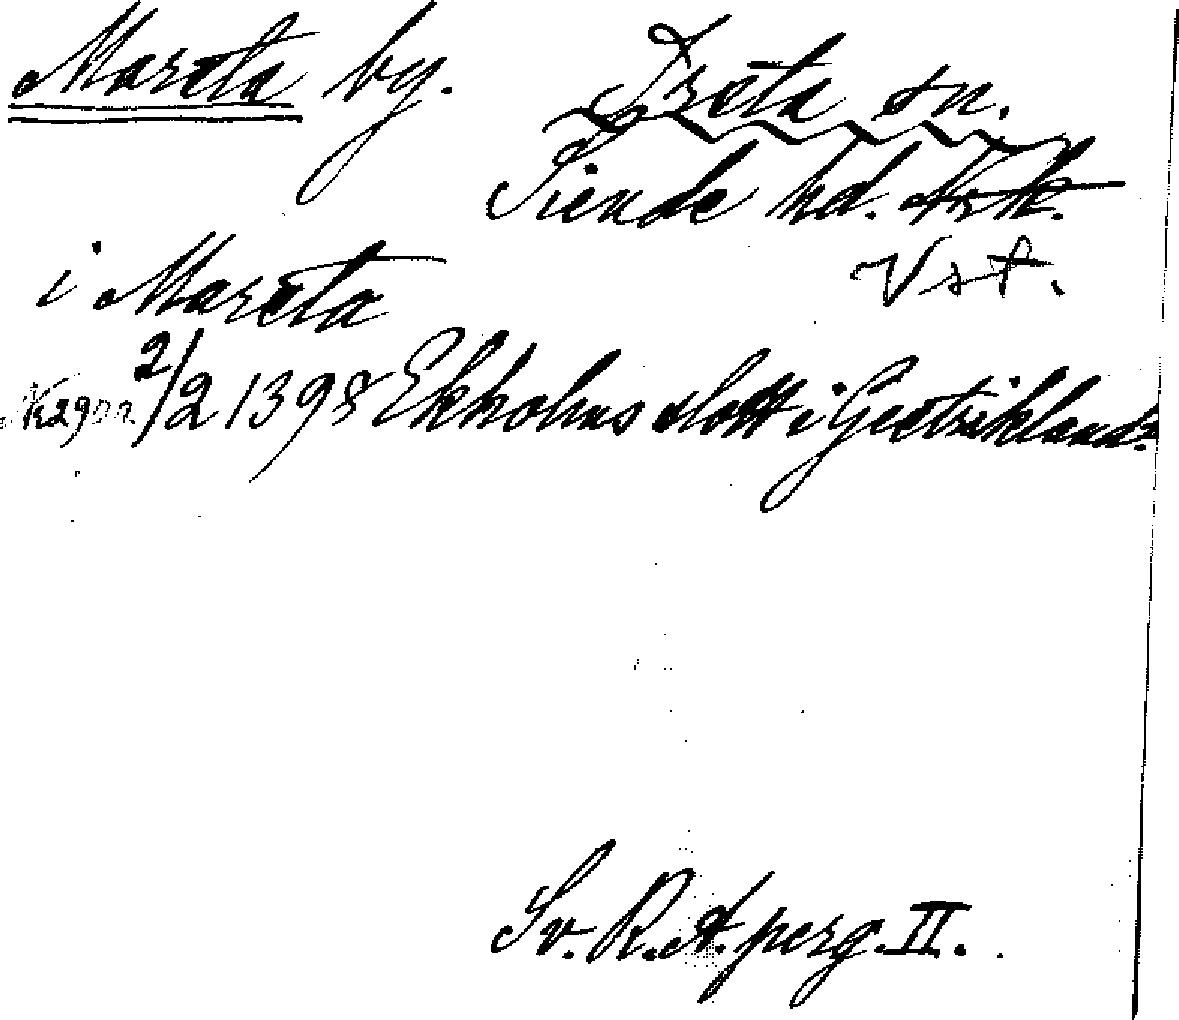 Marsta by. Irsta sn.
Siende hd. Nrk.
Vst.
i Marsta
2/2 1398 Ekholms slott i Gestrikland.
Sv. R. A. perg. II.